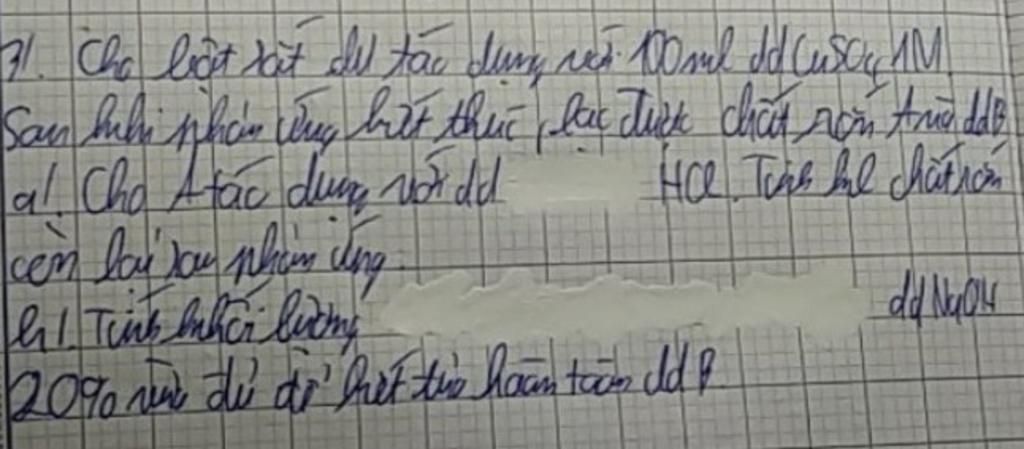 31. Cho bột sắt dư tác dụng với 100ml dd CuSO4 1M
Sau khi phản ứng kết thúc, lọc được chất rắn A và dd B
a/. Cho A tác dụng với dd HCl. Tính kl chất rắn
còn lại sau phản ứng
b/. Tính khối lượng dd NaOH
20% vừa đủ để kết tủa hoàn toàn dd B